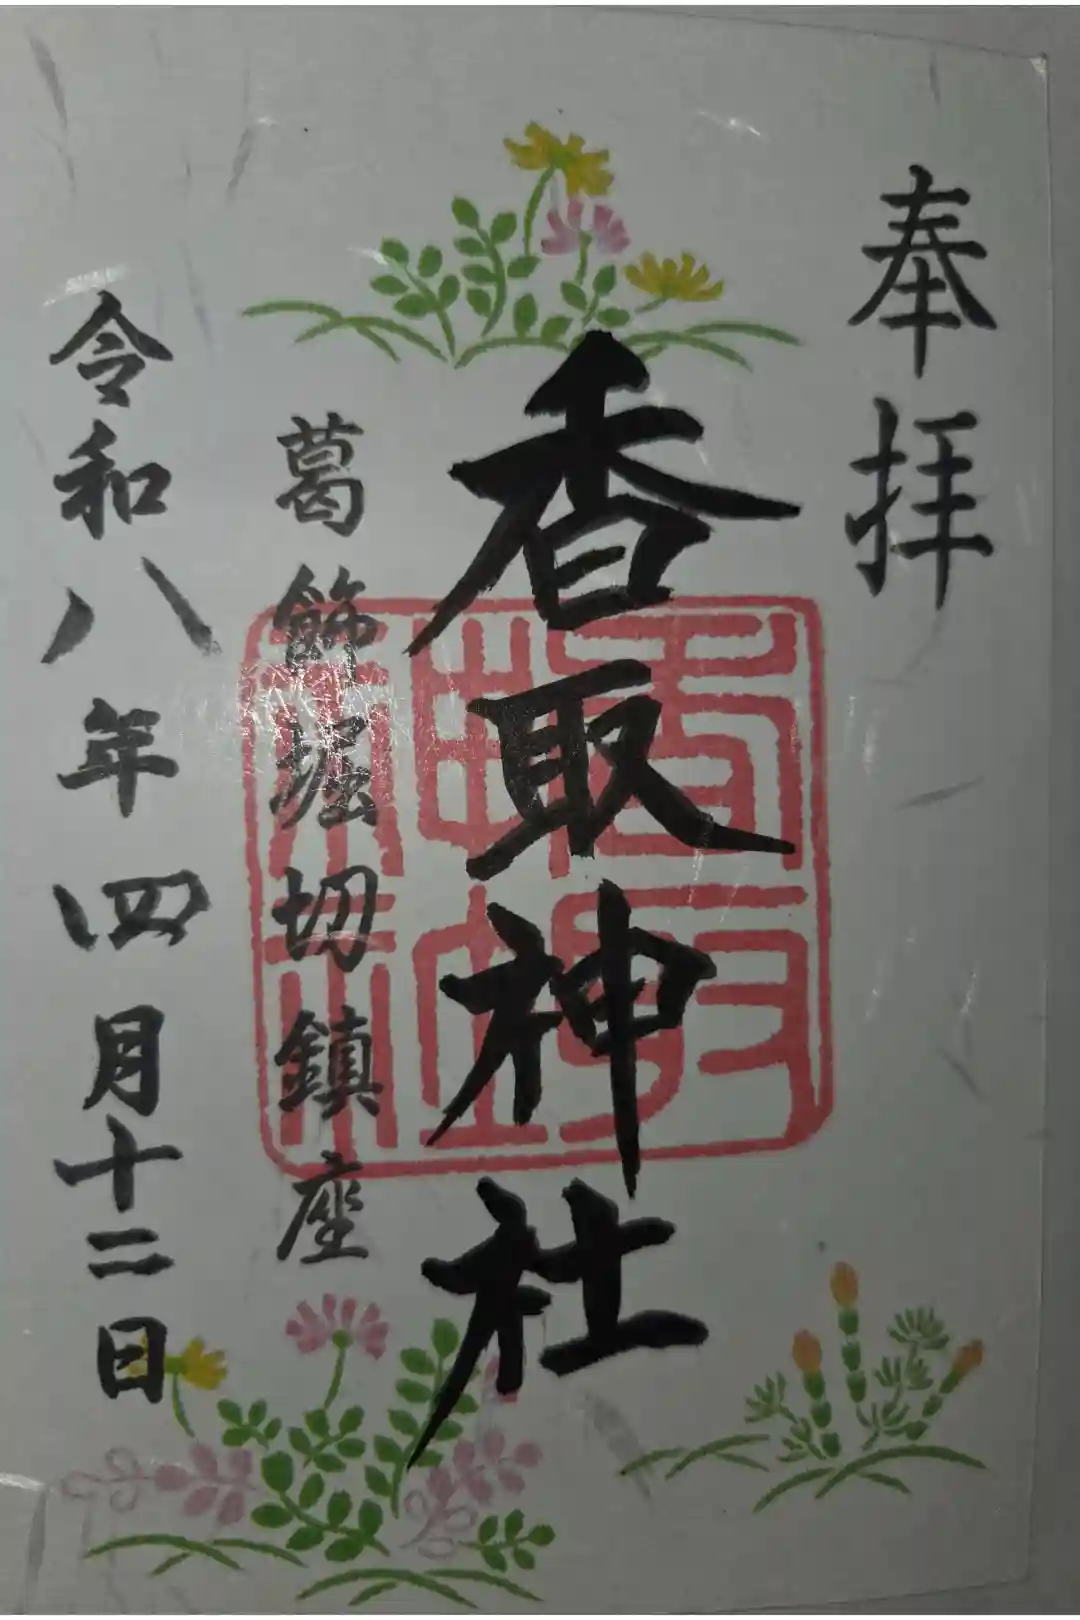 奉拝
香取神社
葛飾堀切鎮座
令和八年四月十二日